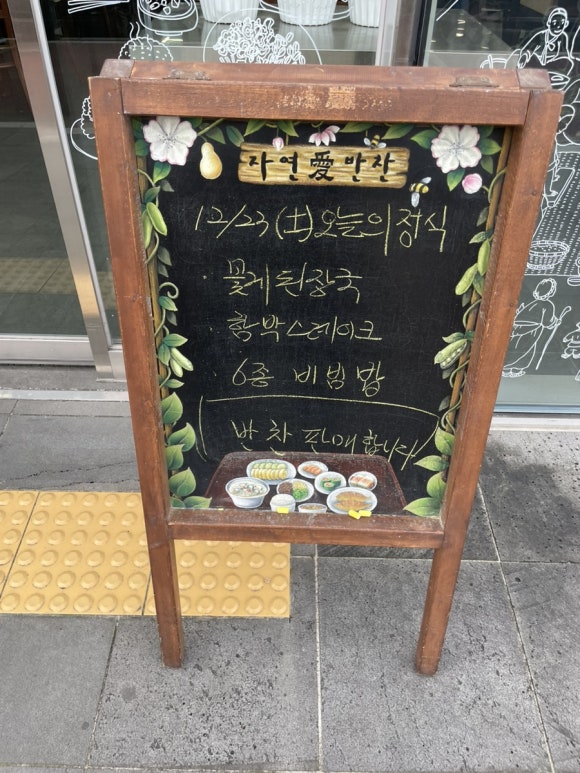 자연愛반찬
12/23(土)오늘의정식
· 꽃게된장국
· 함박스테이크
· 6종 비빔밥
(반찬판매합니다)